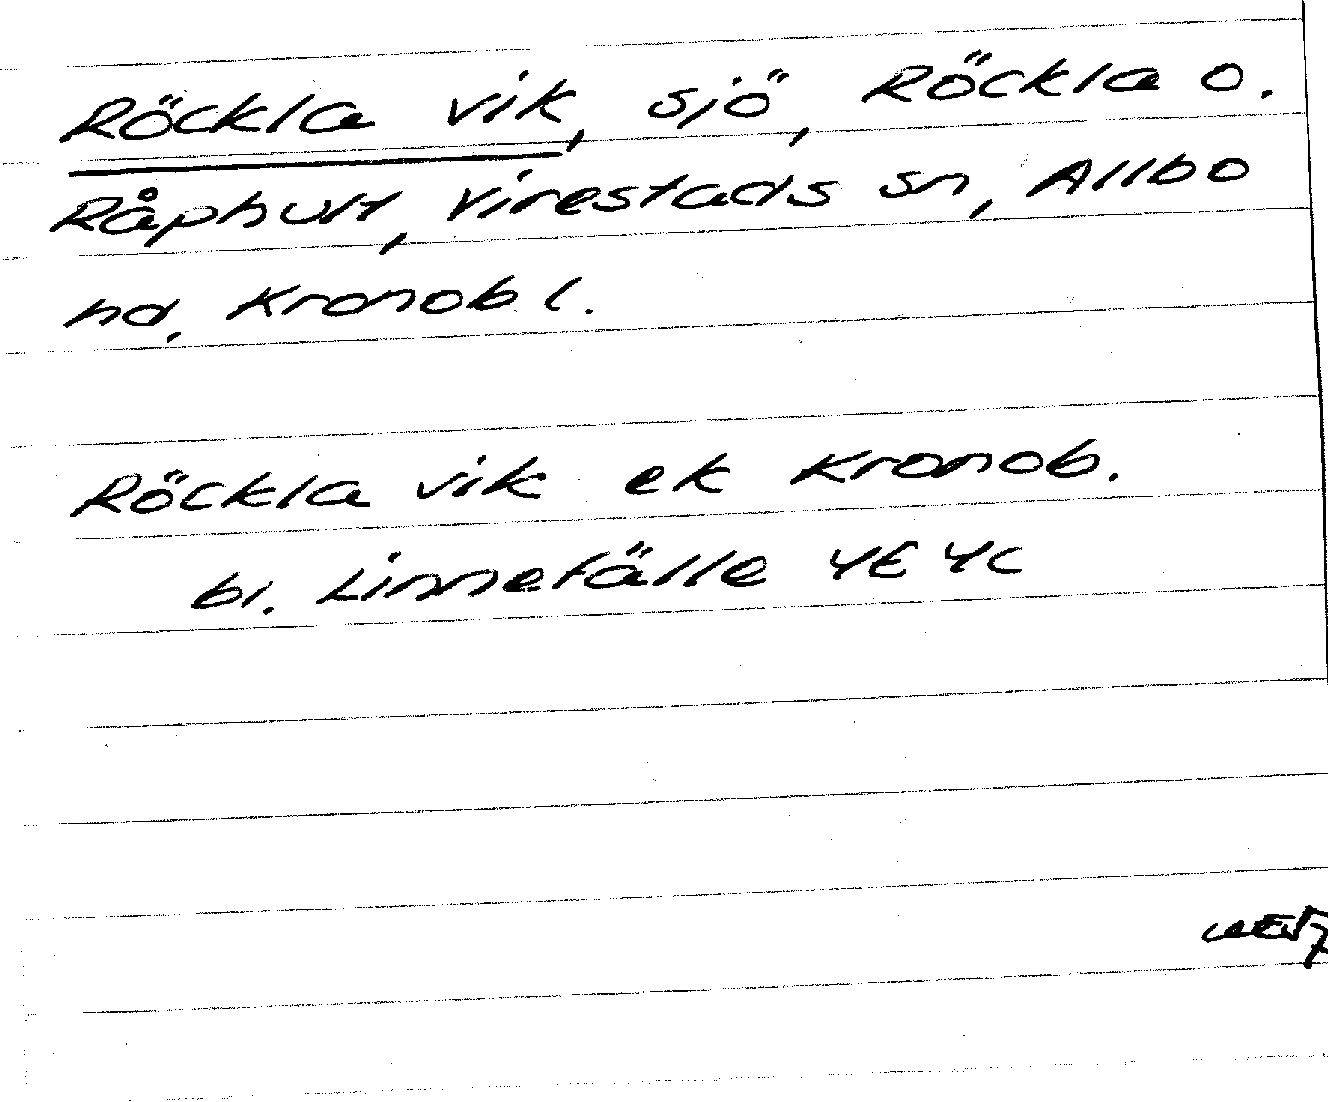 Röckla vik, sjö, Röckla o.
Råphult, Virestads sn, Allbo
hd, Kronob l.
Röckla vik ek Kronob.
bl. Linnefälle 4E 4c